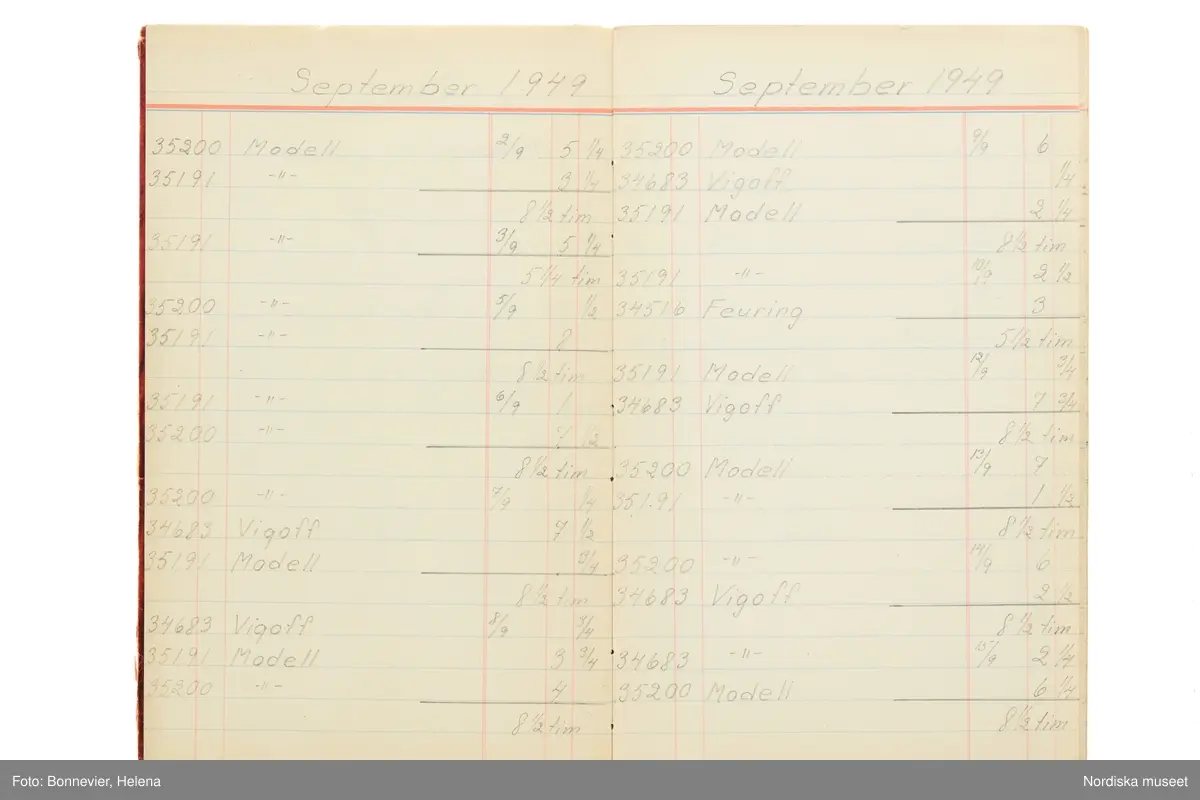 September 1949
35200 Modell 2/9 5 1/4
35191 -"- 3 1/4
8 1/2 tim
35191 -"- 3/9 5 1/4
5 1/4 tim
35200 -"- 5/9 1/2
35191 -"- 8
8 1/2 tim
35191 -"- 6/9 1
35200 -"- 7 1/2
8 1/2 tim
35200 -"- 7/9 1/4
34683 Vigoff 7 1/2
35191 Modell 3/4
8 1/2 tim
34683 Vigoff 8/9 3/4
35191 Modell 3 3/4
35200 -"- 4
8 1/2 tim
September 1949
35200 Modell 9/9 6
34683 Vigoff 1/4
35191 Modell 2 1/4
8 1/2 tim
35191 -"- 10/9 2 1/2
34516 Feuring 3
5 1/2 tim
35191 Modell 12/9 3/4
34683 Vigoff 7 3/4
8 1/2 tim
35200 Modell 13/9 7
35191 -"- 1 1/2
8 1/2 tim
35200 -"- 14/9 6
34683 Vigoff 2 1/2
8 1/2 tim
34683 -"- 15/9 2 1/4
35200 Modell 6 1/4
8 1/2 tim
Foto: Bonnevier, Helena
Nordiska museet